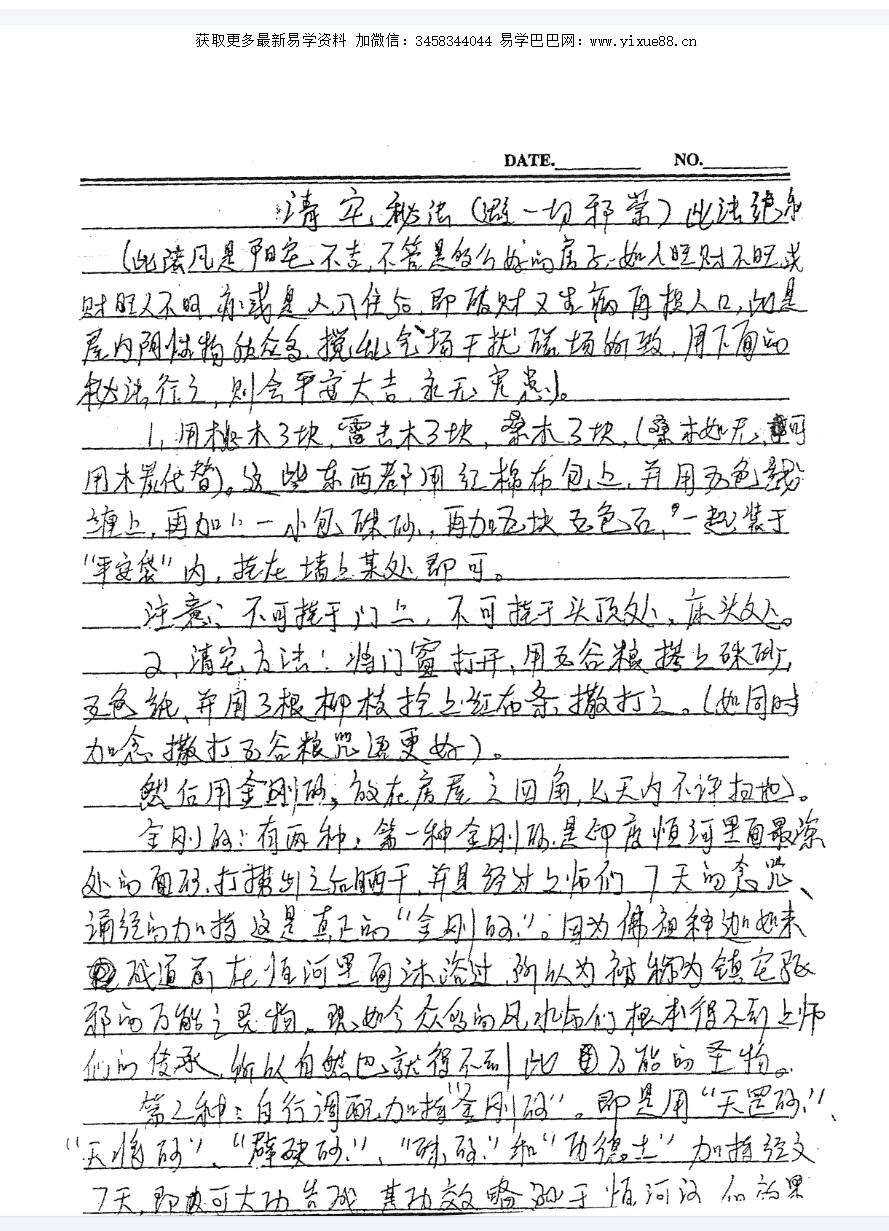 获取更多最新易学资料 加微信：3458344044 易学巴巴网：www.yixue88.cn
DATE.________ NO.________
清宅秘法（避一切邪祟）此法绝密
（此法凡是阳宅不吉，不管是多么好的房子，如人旺财不旺或
财旺人不旺，亦或是人入住后，即破财又生病再损人口，此是
屋内阴性物质众多，搅乱气场干扰磁场所致，用下面的
秘法行之，则会平安大吉，永无灾患）。
1，用桃木3块，雷击木3块，桑木3块，（桑木如无，可
用木炭代替）。这些东西都用红棉布包上，并用五色线
缠上，再加上一小包硃砂，再加五块五色石，一起装于
“平安袋”内，挂在墙上某处即可。
注意：不可挂于门上，不可挂于头顶处，床头处。
2，清宅方法：将门窗打开，用五谷粮拌上硃砂，
五色纸，并用3根柳枝拴上红布条，撒打之。（如同时
加念撒打五谷粮咒语更好）。
然后用金刚砂，放在房屋之四角，七天内不许扫地。
金刚砂：有两种，第一种金刚砂，是印度恒河里面最深
处的面砂，打捞出之后晒干，并且经过上师们7天的念咒、
诵经的加持这是真正的“金刚砂”。因为佛祖释迦如来
成道前在恒河里面沐浴过，所以为被称为镇宅驱
邪的万能之灵物。现如今众多的风水师们根本得不到上师
们的传承，所以自然也就得不到此万能的圣物。
第2种：自行调配加持“金刚砂”。即是用“天罡砂”、
“天将砂”、“辟砂”、“硃砂”和“功德土”加持经文
7天，即可大功告成，其功效略弱于恒河沙